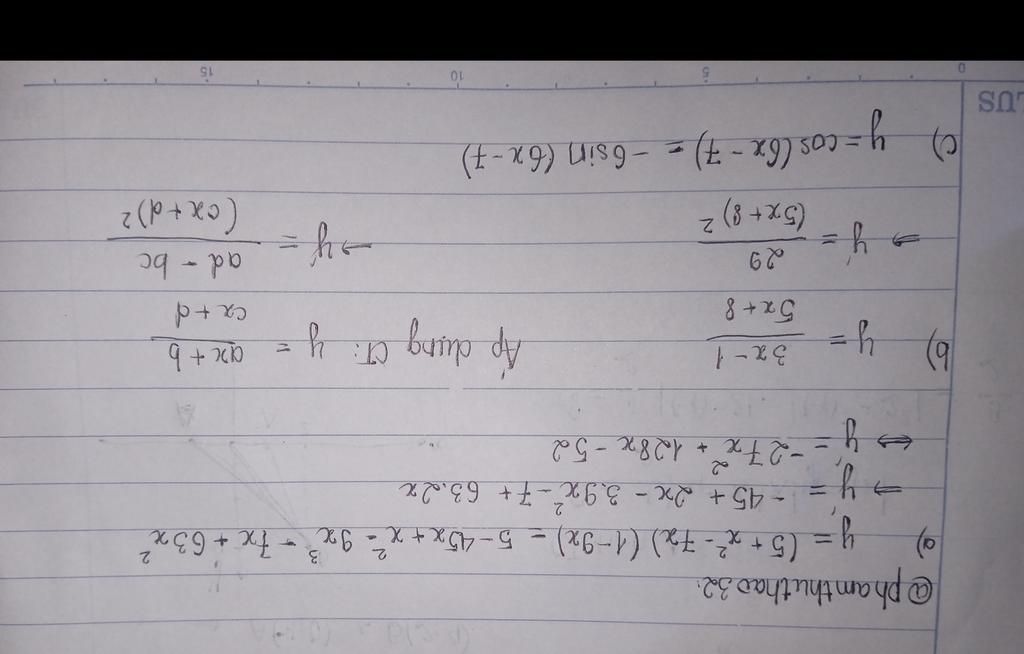 @phamthuthao32:
a) y = (5 + x² - 7x) (1 - 9x) = 5 - 45x + x² - 9x³ - 7x + 63x²
→ y' = - 45 + 2x - 3.9x² - 7 + 63.2x
⇔ y' = -27x² + 128x - 52
b) y = (3x - 1)/(5x + 8) Áp dụng CT: y = (ax + b)/(cx + d)
→ y' = 29/(5x + 8)² → y' = (ad - bc)/(cx + d)²
c) y = cos(6x - 7) = - 6sin (6x - 7)
LUS
0 5 10 15